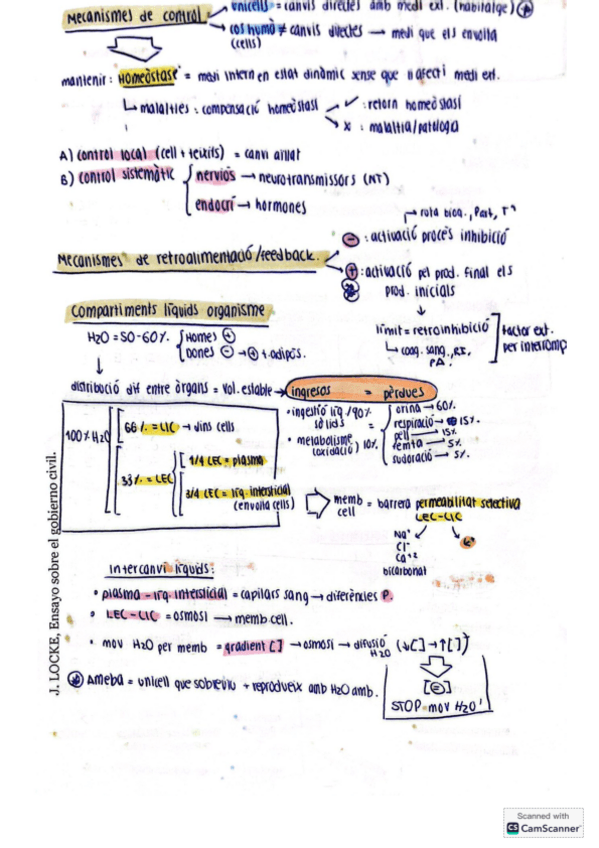 Mecanismes de control
unicells = canvis directes amb medi ext. (habitatge) (+)
cos humà ≠ canvis directes → medi que els envolta
(cells)
mantenir: Homeòstasi = medi intern en estat dinàmic sense que li afecti medi ext.
↳ malalties: compensació homeòstasi
✓: retorn homeòstasi
x: malaltia/patologia
A) control local (cell + teixits) = canvi aïllat
B) control sistemàtic
nerviós → neurotransmissors (NT)
endocrí → hormones
Mecanismes de retroalimentació/feedback.
→ ruta bioq., Part, Tª
⊖: activació procés inhibició
⊕: activació pel prod. final els
prod. inicials
↓
límit = retroinhibició
↳ coag. sang.,
PA.
Factor ext.
per interromp
Compartiments líquids organisme
H2O = 50-60%.
Homes ⊕
Dones ⊖ → ⊕ t. adipós.
↓
distribució dif entre òrgans = Vol. estable →
ingresos = pèrdues
• ingestió líq./90%
sòlids
• metabolisme
(oxidació) 10%
=
orina → 60%
respiració → 15%
pell → 15%
femta → 5%
sudoració → 5%.
100% H2O
66% = LIC → dins cells
33% = LEC
1/4 LEC = plasma
3/4 LEC = líq. intersticial
(envolta cells)
memb = barrera permeabilitat selectiva
cell
LEC-LIC
Na+
Cl-
Ca+2
bicarbonat
K+
Intercanvi líquids:
• plasma - líq. intersticial = capilars sang → diferències P.
• LEC - LIC = osmosi → memb. cell.
• mov H2O per memb = gradient [] → osmosi → difusió (↓[] → ↑[])
H2O
[=]
STOP mov H2O
Ameba = unicell que sobreviu + reprodueix amb H2O amb.
J. LOCKE, Ensayo sobre el gobierno civil.
Scanned with
CS CamScanner